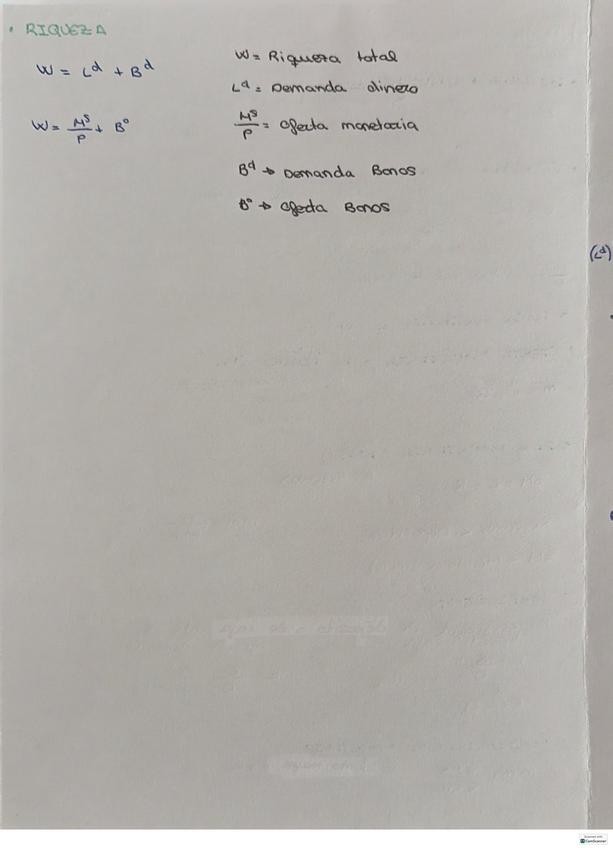 • RIQUEZA
W = L^d + B^d
W = M^s/P + B^o
W = Riqueza total
L^d = Demanda dinero
M^s/P = Oferta monetaria
B^d → Demanda Bonos
B^o → Oferta Bonos
(L^d)
Scanned with
CamScanner